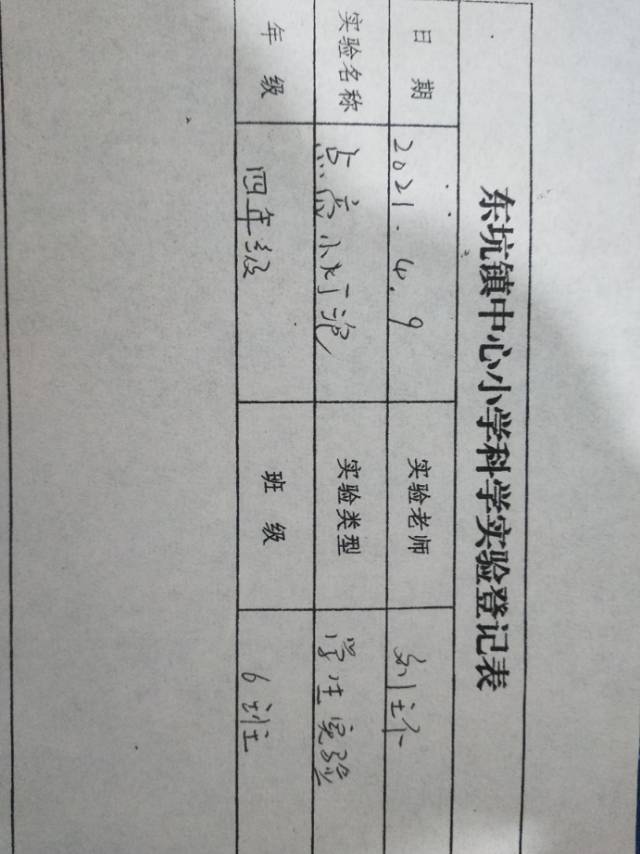 东坑镇中心小学科学实验登记表
日 期 2021.4.9 实验老师
实验名称 点亮小灯泡 实验类型 学生实验
年 级 四年级 班 级 6班